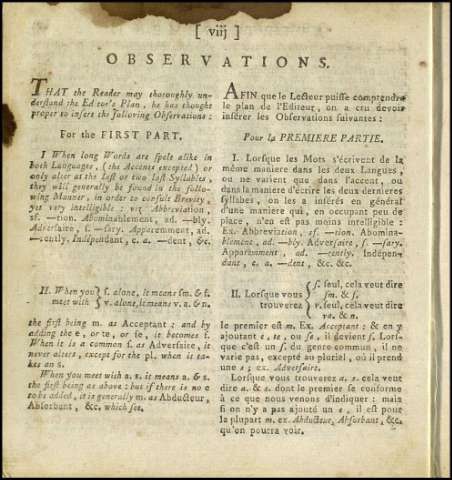 [ viij ]
OBSERVATIONS.
THAT the Reader may thoroughly un-
derstand the Editor's Plan, he has thought
proper to insert the following Observations:
For the FIRST PART.
I When long Words are spelt alike in
both Languages, (the Accents excepted) or
only alter at the last or two last Syllables,
they will generally be found in the follo-
wing Manner, in order to consult Brevity,
yet very intelligible: viz. Abbreviation,
sf. —tion. Abominablement, ad. —bly.
Adversaire, f. —sary. Apparemment, ad.
—rently. Indépendant, e. a. —dent, &c.
II. When you { f. alone, it means sm. & f.
meet with { v. alone, it means v. a. & n.
the first being m. as Acceptant; and by
adding the e, or te, or se, it becomes f.
When it is a common f. as Adversaire, it
never alters, except for the pl. when it ta-
kes an s.
When you meet with a. s. it means a. & s.
the first being as above: but if there is no e
to be added, it is generally m. as Abducteur,
Absorbant, &c. which see.
AFIN que le Lecteur puisse comprendre
le plan de l'Editeur, on a cru devoir
insérer les Observations suivantes:
Pour la PREMIERE PARTIE.
I. Lorsque les Mots s'écrivent de la
même maniere dans les deux Langues,
ou ne varient que dans l'accent, ou
dans la maniere d'écrire les deux dernieres
syllabes, on les a insérés en général
d'une maniere qui, en occupant peu de
place, n'en est pas moins intelligible:
Ex. Abbreviation, sf. —tion. Abomina-
blement, ad. —bly. Adversaire, f. —sary.
Apparemment, ad. —rently. Indépen-
dant, e. a. —dent, &c. &c.
II. Lorsque vous { f. seul, cela veut dire
sm. & f.
trouverez { v. seul, cela veut dire
va. & n.
le premier est m. Ex. Acceptant: & en y
ajoutant e, te, ou se, il devient f. Lors-
que c'est un f. du genre commun, il ne
varie pas, excepté au pluriel, où il prend
une s; ex. Adversaire.
Lorsque vous trouverez a. s. cela veut
dire a. & s. dont le premier se conforme
à ce que nous venons d'indiquer: mais
si on n'y a pas ajouté un e, il est pour
la plupart m. ex. Abducteur, Absorbant, &c.
qu'on pourra voir.